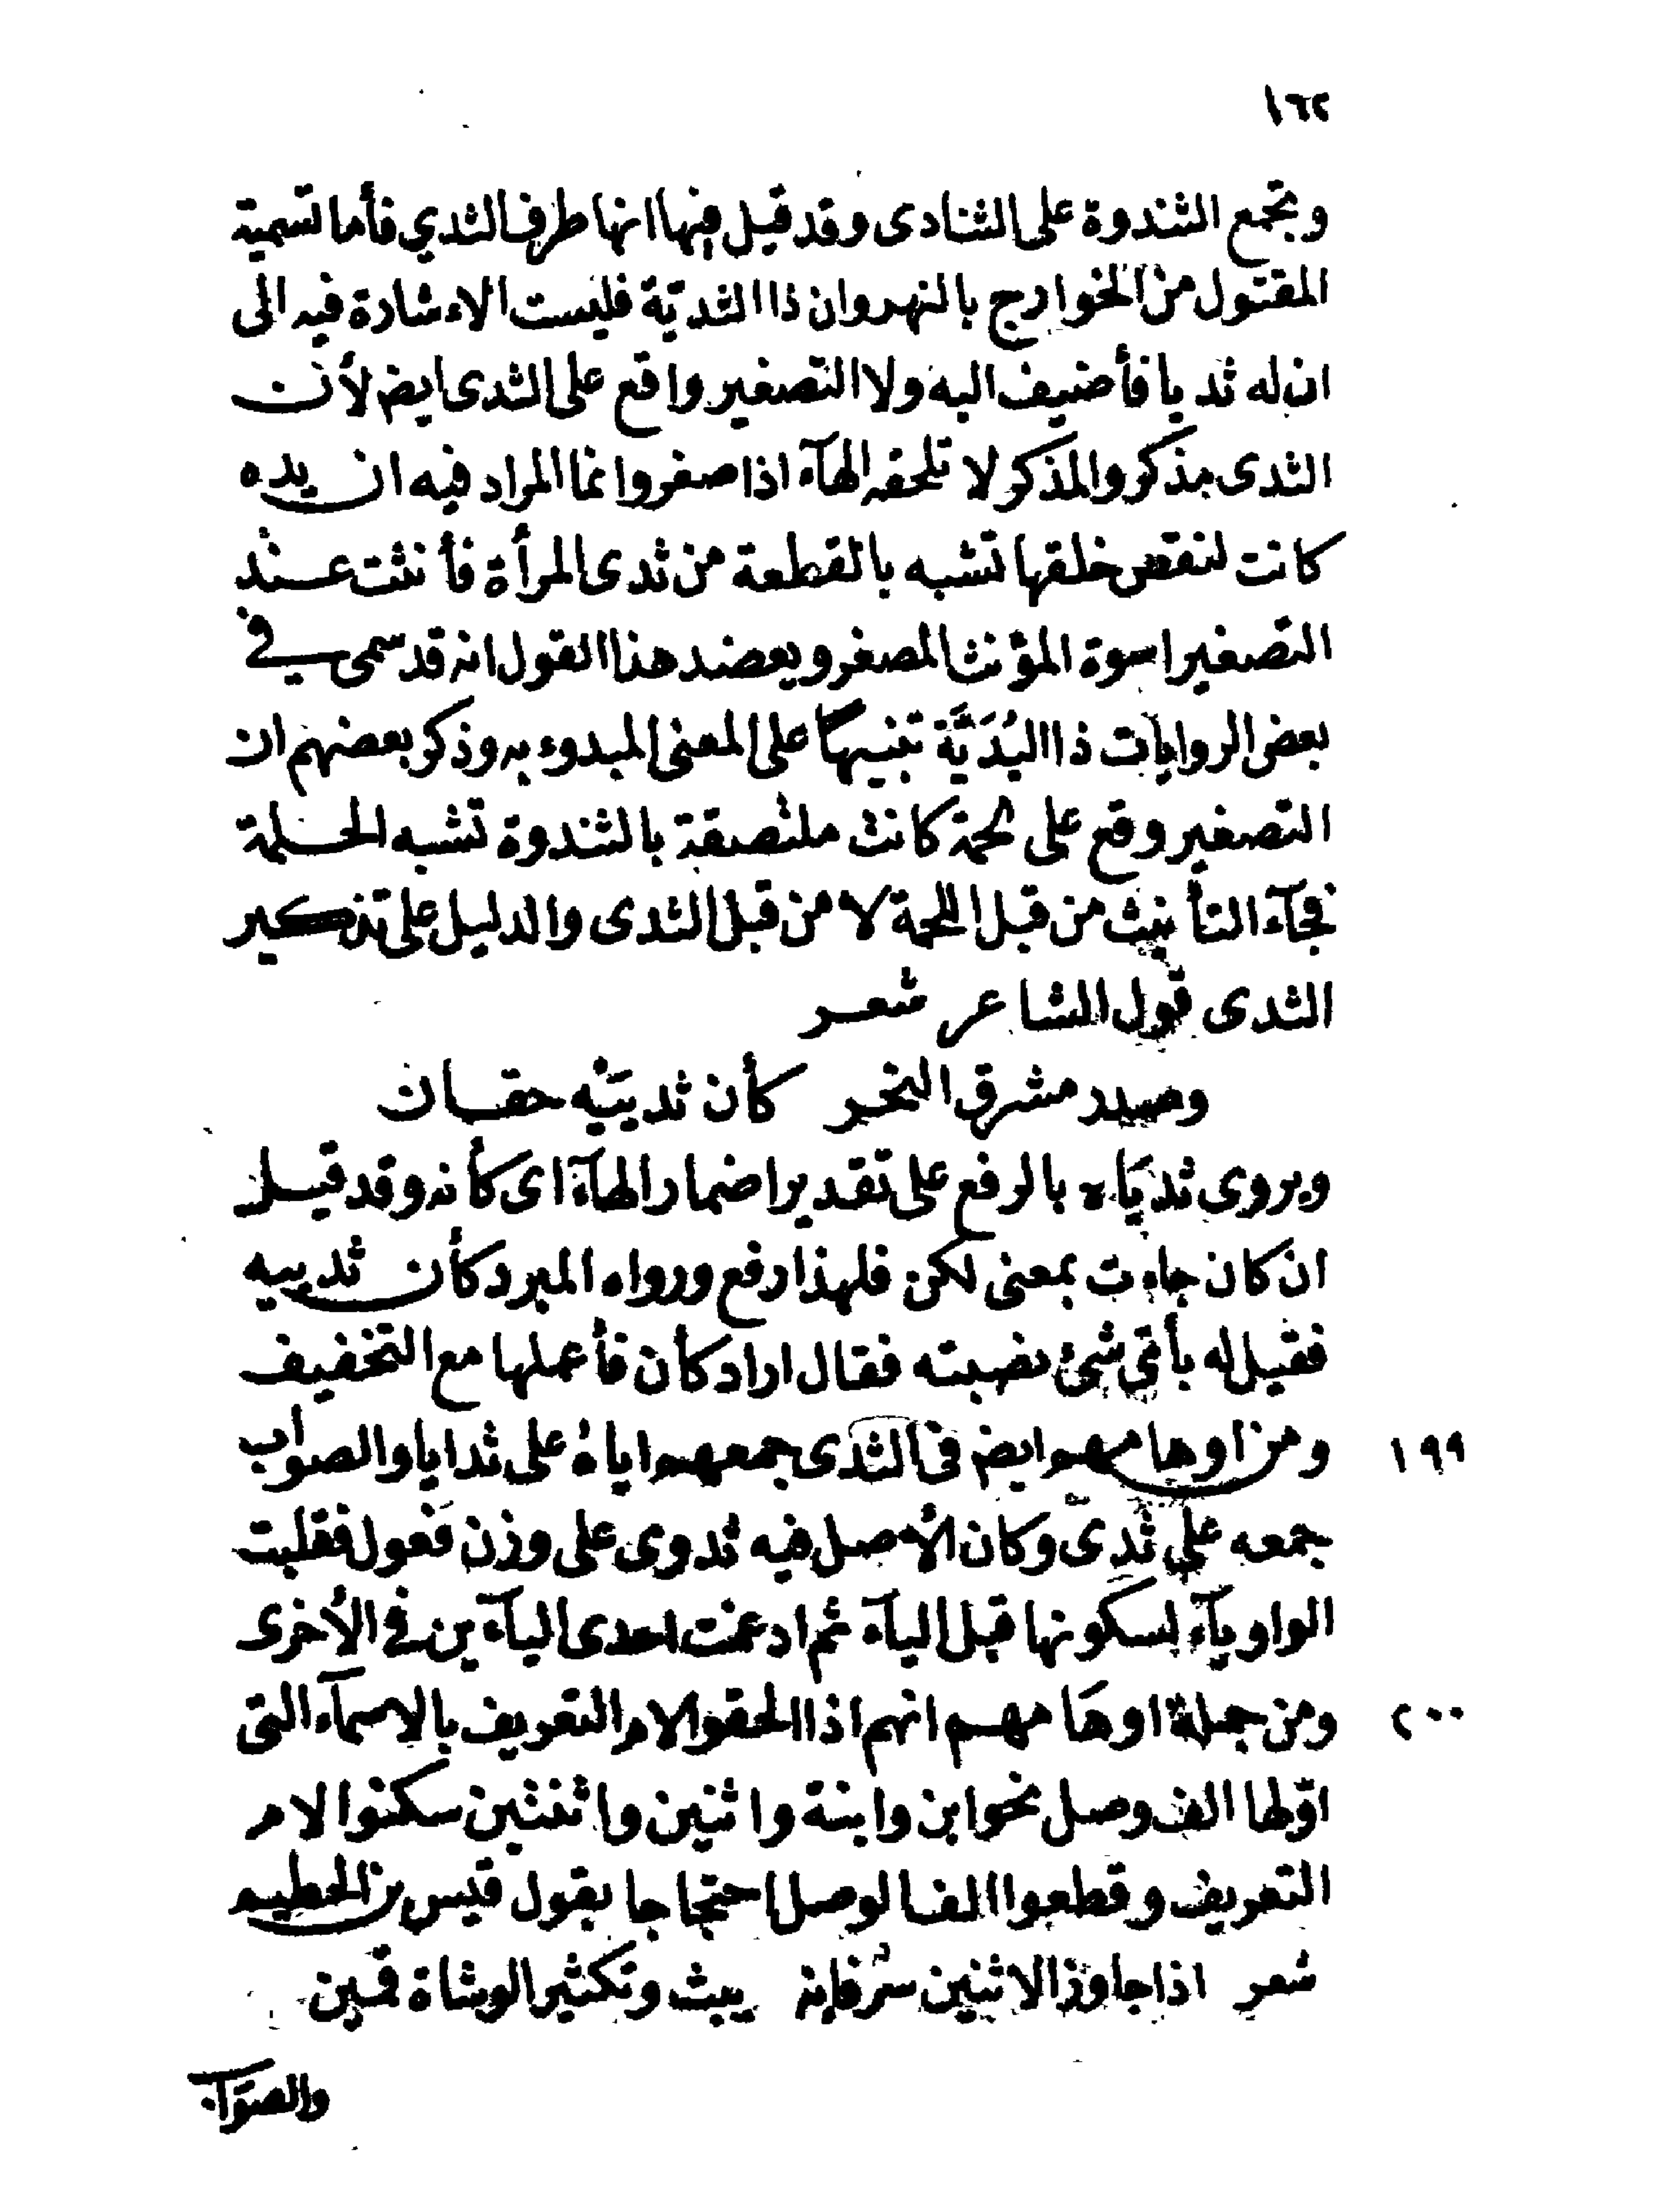 ١٦٢
وتجمع الثندوة على الثنادى وقد قيل فيها انها طرف الثدي فأما تسمية
المقتول من الخوارج بالنهروان ذا الثديّة فليست الاءشارة فيه الى
ان له ثديا فأضيف اليه ولا التصغير واقع على الثدى ايض لأن
الثدى مذكر والمذكر لا تلحقه الهآء اذا صغر وانما المراد فيه ان يده
كانت لنقص خلقها تشبه بالقطعة من ثدى المرأة فأنثت عند
التصغير اسوة المؤنث المصغر ويعضد هذا القول انه قد سمى في
بعض الروايات ذا اليُدَيَّة تنبيهاً على المعنى المبدوء به وذكر بعضهم ان
التصغير وقع على لحمة كانت ملتصقة بالثندوة تشبه الحلمة
فجآء التأنيث من قبل اللحمة لا من قبل الثدى والدليل على تذكير
الثدى قول الشاعر شعر
وصدر مشرق النحر كأن ثدييْه حقان
ويروى ثديَاه بالرفع على تقدير اضمار الهآء اى كأنه وقد قيل
ان كان جاءت بمعنى لكن فلهذا رفع ورواه المبرد كأن ثدييه
فقيل له بأى شئ نصبته فقال اراد كأن فأعملها مع التخفيف
١٩٩ ومن اوهامهم ايض فى الثدى جمعهم اياهُ على ثدايا والصواب
جمعه على ثُدِىّ وكان الأصل فيه ثدوى على وزن فعول فقلبت
الواو يآء لسكونها قبل اليآء ثم ادغمت احدى اليآءين فى الأخرى
٢٠٠ ومن جملة اوهَامهم انهم اذا الحقوا لام التعريف بالاسمآء التى
اوّلها الف وصل نحو ابن وابنة واثنين واثنتين سكنوا لام
التعريف وقطعوا الف الوصل احتجاجا بقول قيس بن الخطيم
شعر اذا جاوز الاثنين سرّ فإنه يبث وتكثير الوشاة قمين
والصوآب